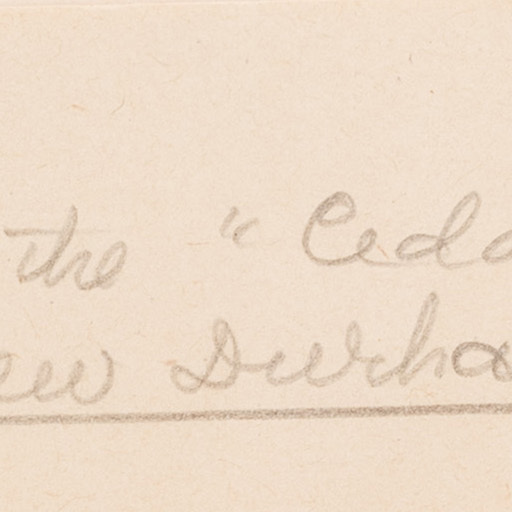 the "Ceda
ew Durha